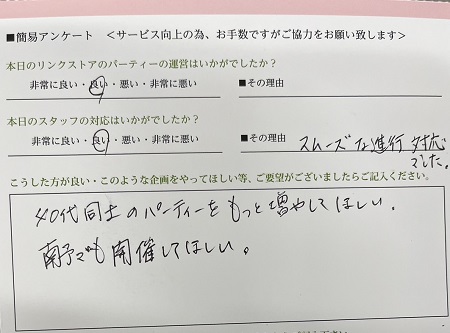 ■簡易アンケート ＜サービス向上の為、お手数ですがご協力をお願い致します＞
本日のリンクストアのパーティーの運営はいかがでしたか？
非常に良い・良い・悪い・非常に悪い ■その理由
本日のスタッフの対応はいかがでしたか？
非常に良い・良い・悪い・非常に悪い ■その理由 スムーズな進行対応
でした。
こうした方が良い・このような企画をやってほしい等、ご要望がございましたらご記入ください。
40代同士のパーティーをもっと増やしてほしい。
南予でも開催してほしい。